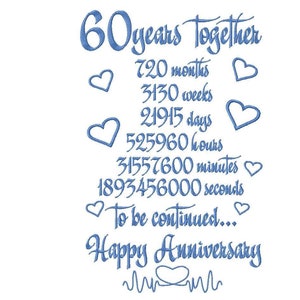 60 years together
720 months
3130 weeks
21915 days
525960 hours
31557600 minutes
1893456000 seconds
To be continued...
Happy Anniversary